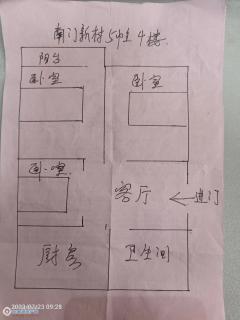 南门新村5幢4楼
阳台
卧室
卧室
卧室
客厅
进门
厨房
卫生间
2023/07/23 09:28